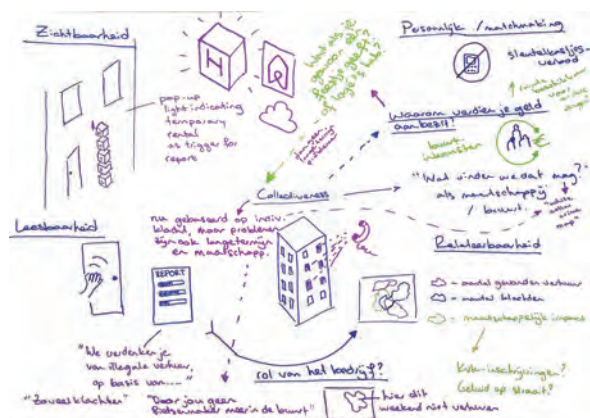 Zichtbaarheid
H
pop-up
light indicating
temporary
rental
as trigger for
report
wat als je
gewoon
feestje geeft
of logé's hebt?
Persoonlijk / matchmaking
sleutelkastjes-
verbod
Waarom verdien je geld
aan bezit?
buurt-
€
"Wat vinden we dat mag?"
als maatschappij
/ buurt.
Collectiveness
nu gebaseerd op indiv.
klacht, maar problemen
zijn ook langetermijn
en maatschapp.
Leesbaarheid
REPORT
Relateerbaarheid
- aantal gevonden verhuur
- aantal klachten
- maatschappelijk impact
"We verdenken je
van illegale verhuur,
op basis van...."
"Zoveel klachten"
"Door jou geen
fietsenmaker meer in de buurt"
rol van het bedrijf?
hier dit
weekend niet verhuren
KvK-inschrijvingen?
Geluid op straat?